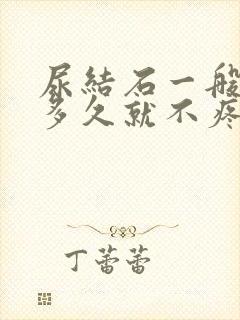 尿結石一般
多久就不疼
丁蕾蕾